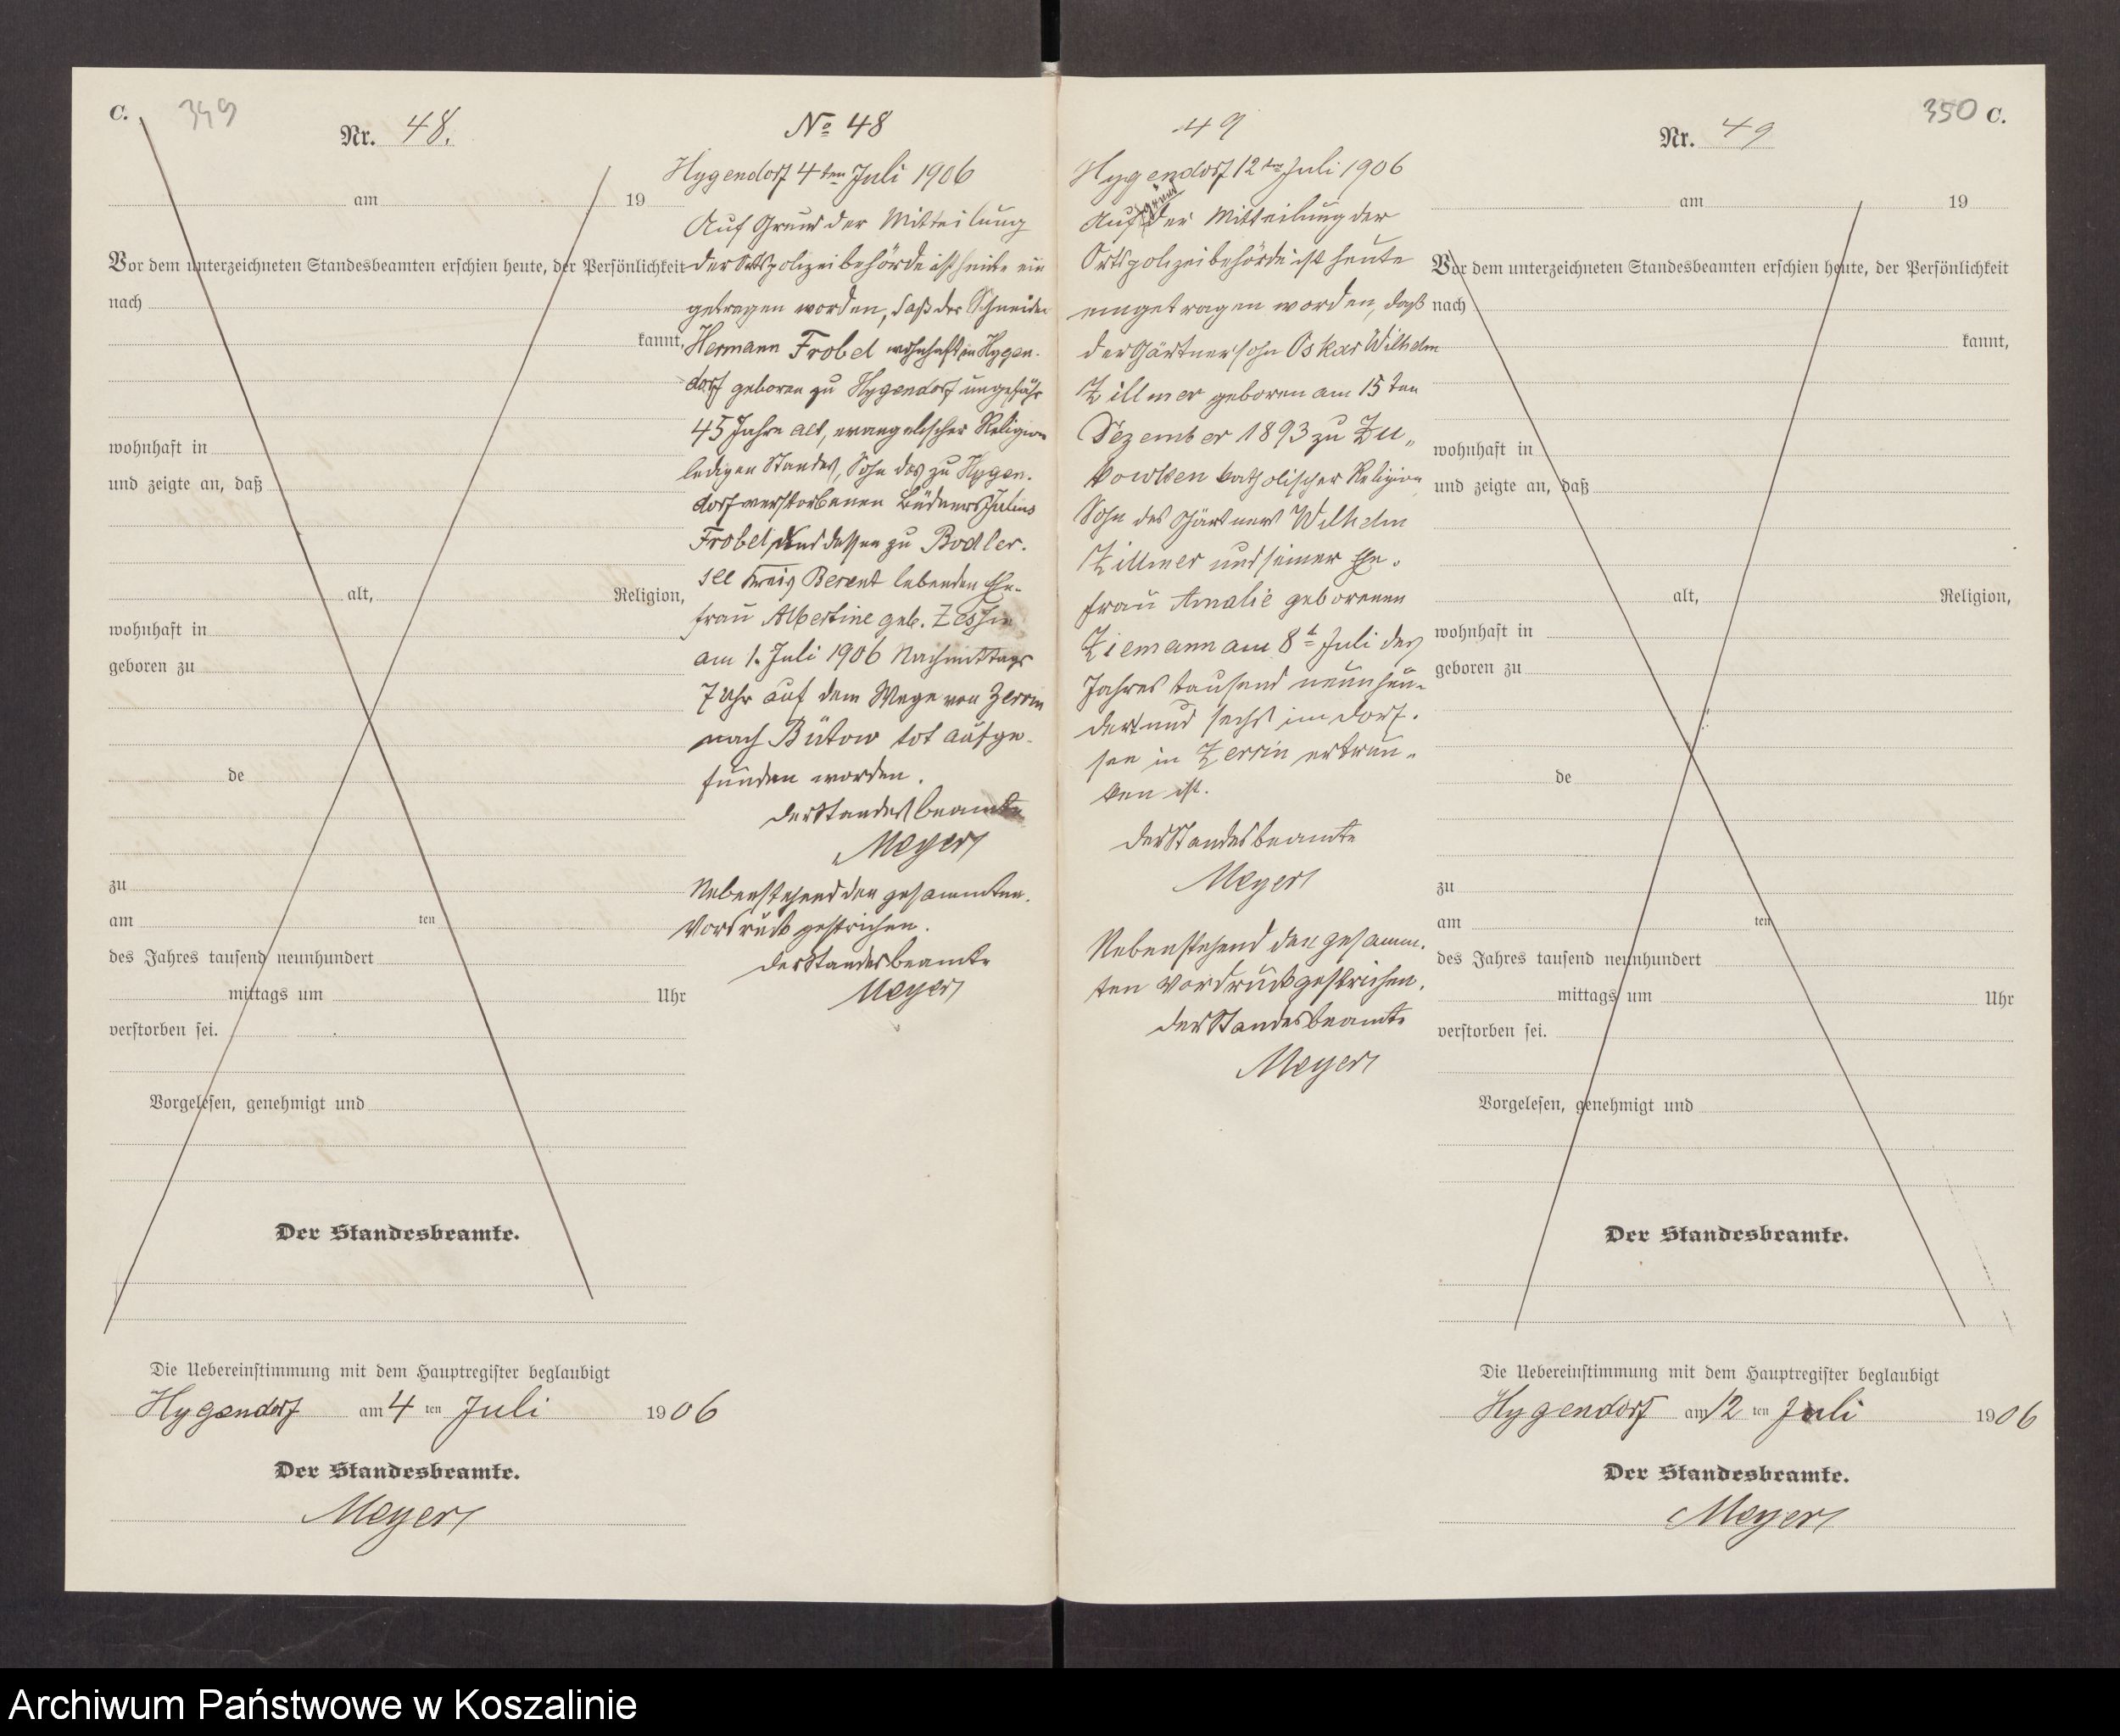 C.
349
Nr. 48.
am 19
Vor dem unterzeichneten Standesbeamten erschien heute, der Persönlichkeit
nach
kannt,
wohnhaft in
und zeigte an, daß
alt, Religion,
wohnhaft in
geboren zu
de
zu
am ten
des Jahres tausend neunhundert
mittags um Uhr
verstorben sei.
Vorgelesen, genehmigt und
Der Standesbeamte.
Die Uebereinstimmung mit dem Hauptregister beglaubigt
Hygendorf am 4 ten Juli 1906
Der Standesbeamte.
Meyer
No 48
Hygendorf 4ten Juli 1906
Auf Grund der Mitteilung
der Ortspolizeibehörde ist heute ein
getragen worden, daß der Schneider
Hermann Frobel wohnhaft in Hygen-
dorf geboren zu Hygendorf ungefähr
45 Jahre alt, evangelischer Religion
ledigen Standes, Sohn des zu Hygen-
dorf verstorbenen Büdners Julius
Frobel und dessen zu Bodler-
see Kreis Berent lebenden Ehe-
frau Albertine geb.
am 1. Juli 1906 Nachmittags
7 Uhr auf dem Wege von Zerrin
nach Bütow tot aufge-
funden worden.
der Standesbeamte
Meyer
Nebenstehend den gesammten
Vordruck gestrichen.
der Standesbeamte
Meyer
49
Hygendorf 12ten Juli 1906
Grund
Auf der Mitteilung der
Ortspolizeibehörde ist heute
eingetragen worden, daß
der Gärtnersohn Oskar Wilhelm
Zillmer geboren am 15ten
Dezember 1893 zu Zu„
kowken katholischer Religion
Sohn des Gärtners Wilhelm
Zillmer und seiner Ehe-
frau Amalie geborenen
Ziemann am 8t Juli des
Jahres tausend neunhun-
dert und sechs im Dorf-
see in Zerrin ertrun-
ken ist.
der Standesbeamte
Meyer
Nebenstehend den gesamm-
ten Vordruck gestrichen.
der Standesbeamte
Meyer
350 C.
Nr. 49
am 19
Vor dem unterzeichneten Standesbeamten erschien heute, der Persönlichkeit
nach
kannt,
wohnhaft in
und zeigte an, daß
alt, Religion,
wohnhaft in
geboren zu
de
zu
am ten
des Jahres tausend neunhundert
mittags um Uhr
verstorben sei.
Vorgelesen, genehmigt und
Der Standesbeamte.
Die Uebereinstimmung mit dem Hauptregister beglaubigt
Hygendorf am 12 ten Juli 1906
Der Standesbeamte.
Meyer
Archiwum Państwowe w Koszalinie